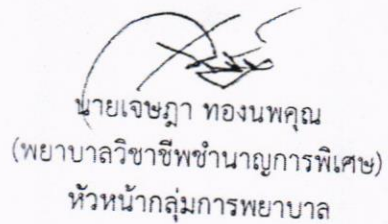 นายเจษฎา ทองนพคุณ
(พยาบาลวิชาชีพชำนาญการพิเศษ)
หัวหน้ากลุ่มการพยาบาล